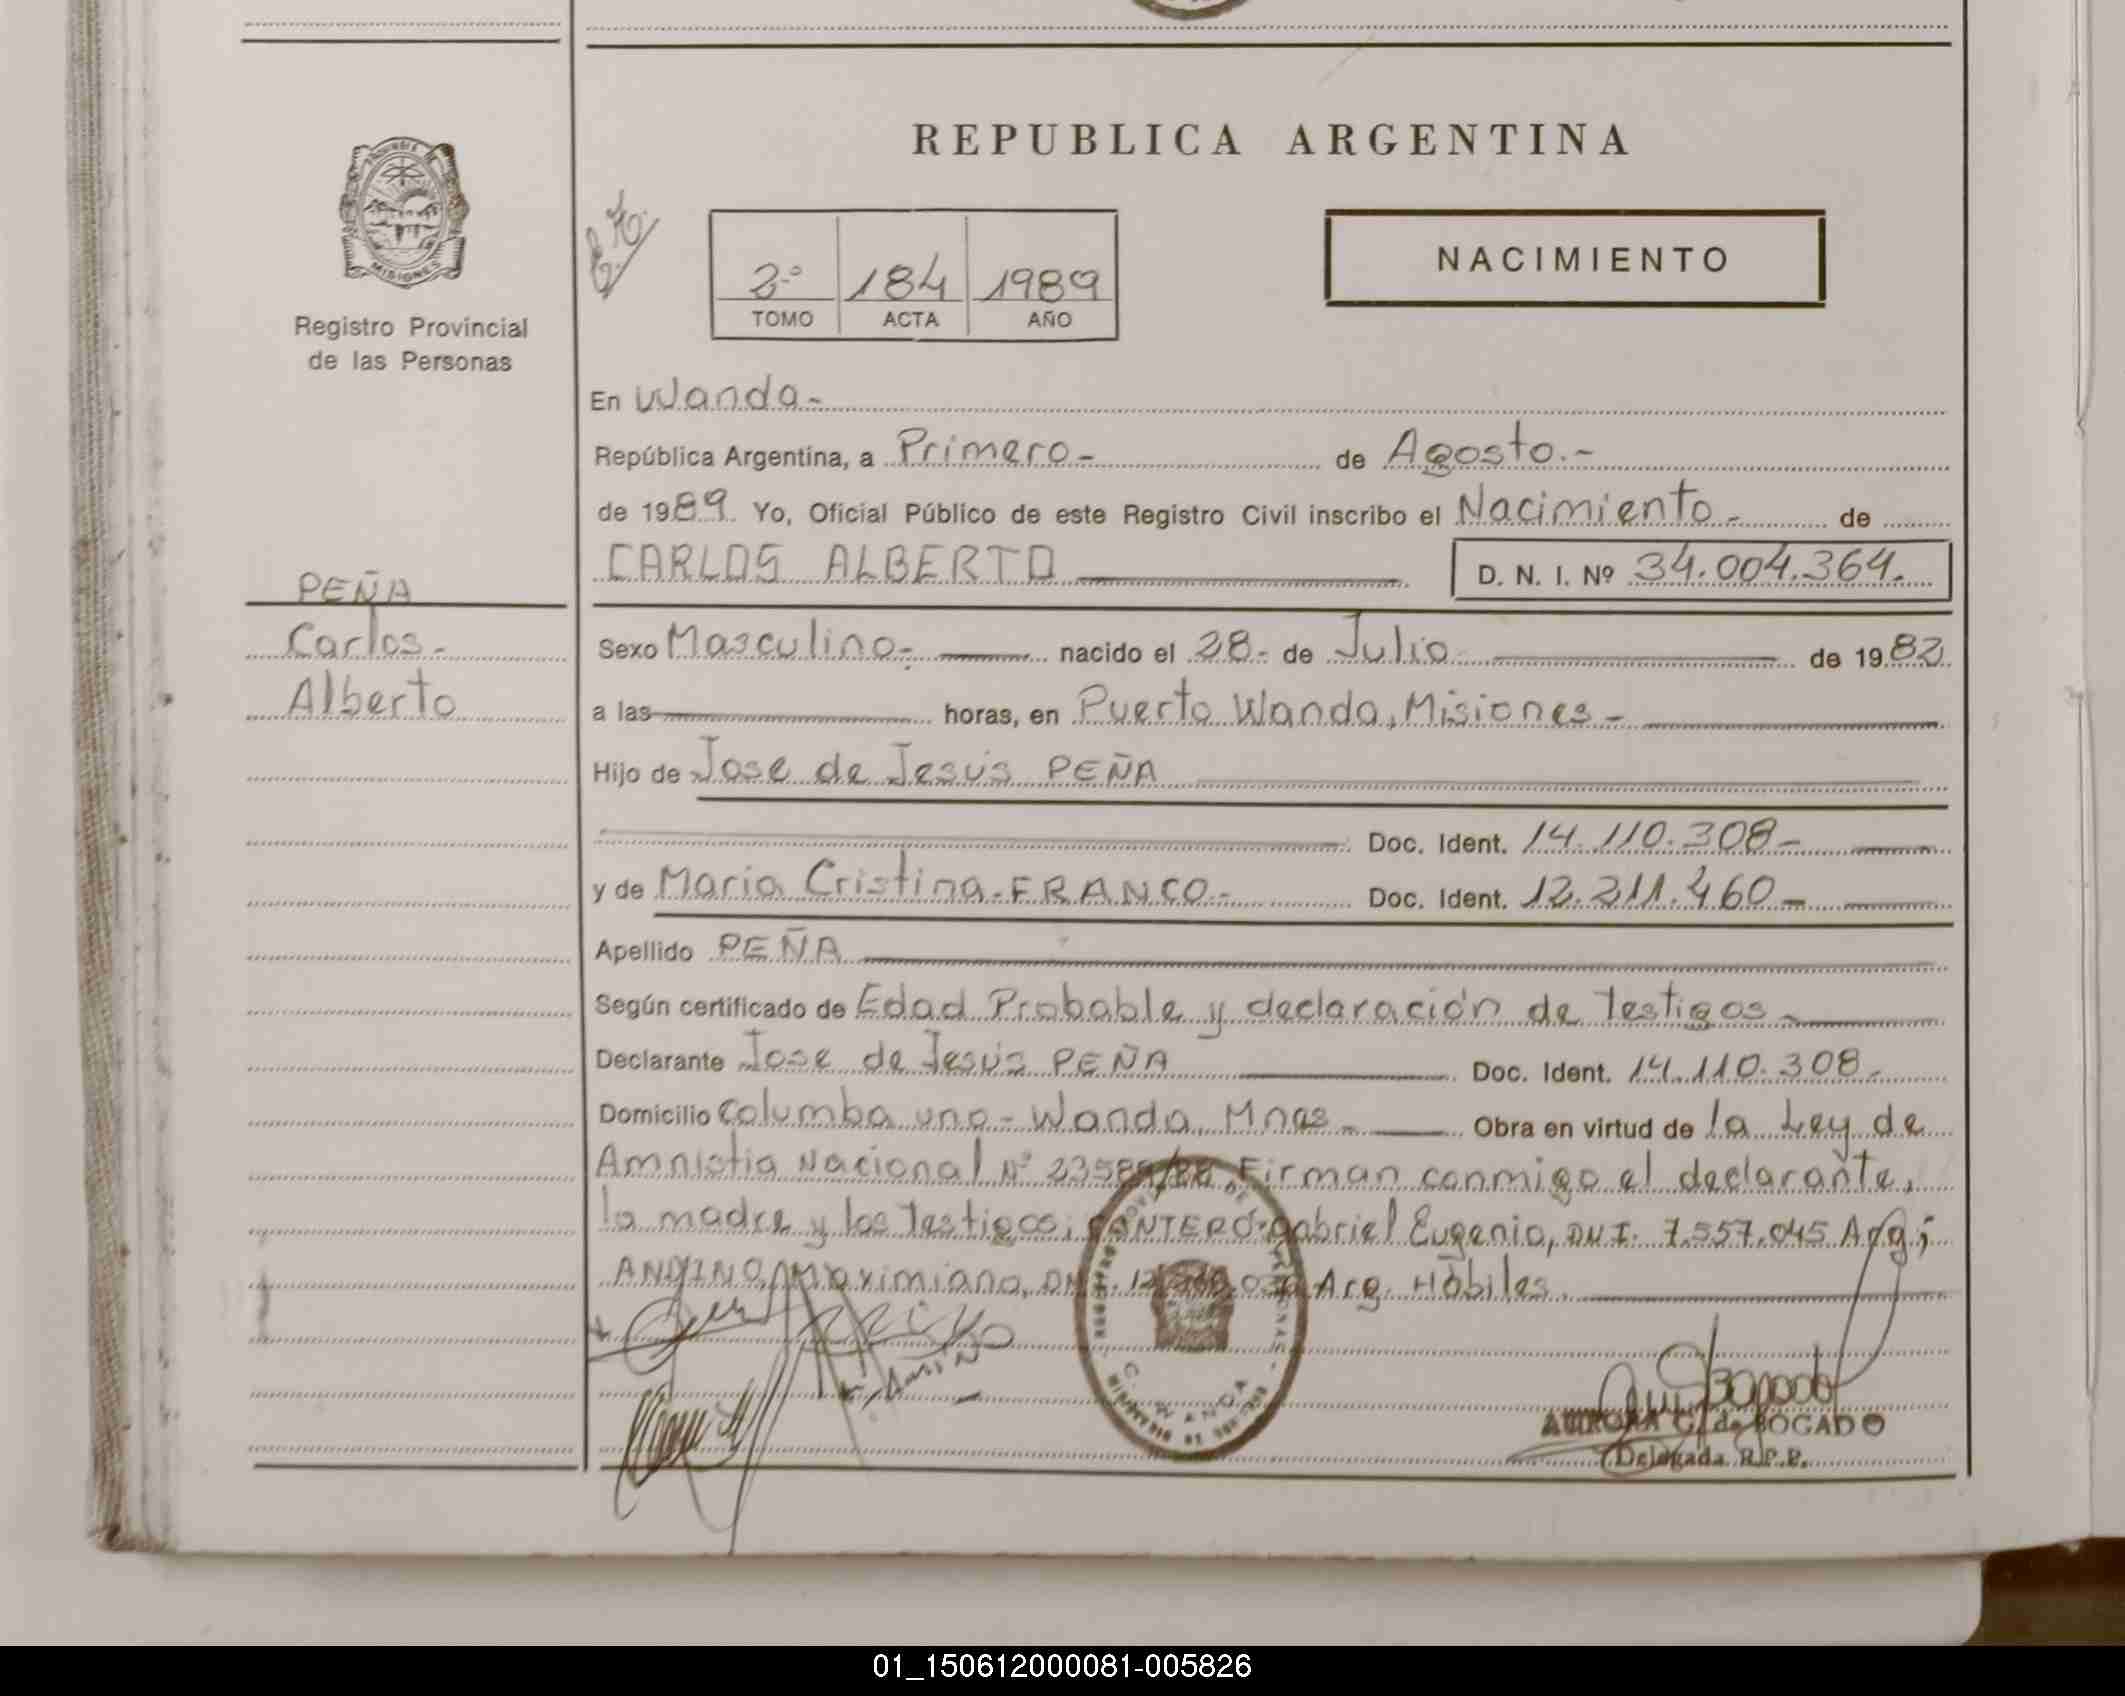 REPUBLICA ARGENTINA
MISIONES
Registro Provincial
de las Personas
2º 184 1989
TOMO ACTA AÑO
NACIMIENTO
En Wanda-
República Argentina, a Primero- de Agosto.-
de 1989. Yo, Oficial Público de este Registro Civil inscribo el Nacimiento- de
CARLOS ALBERTO D. N. I. Nº 34.004.364.
PEÑA
Carlos-
Alberto
Sexo Masculino- nacido el 28- de Julio de 1982
a las horas, en Puerto Wanda, Misiones-
Hijo de Jose de Jesús PEÑA
Doc. Ident. 14.110.308-
y de Maria Cristina-FRANCO.- Doc. Ident. 12.211.460-
Apellido PEÑA
Según certificado de Edad Probable y declaración de Testigos
Declarante Jose de Jesús PEÑA Doc. Ident. 14.110.308-
Domicilio Columba uno-Wanda, Mnes- Obra en virtud de la Ley de
Amnistia Nacional Nº Firman conmigo el declarante,
la madre y los Testigos; CANTERO Gabriel Eugenio, DNI. 7.557.045 Arg;
ANDINO, Maximiano, Arg. Hábiles.
AURORA G. de BOGADO
Delegada R.P.P.
WANDA
01_150612000081-005826